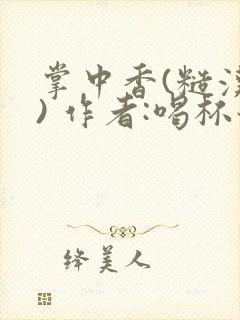 掌中香(糙汉
) 作者:喝杯
绛美人